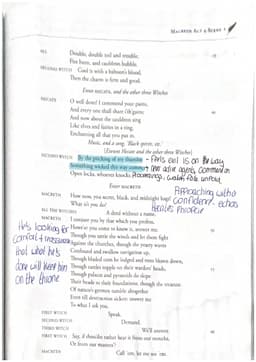 MACBETH ACT 4 SCENE 1
ALL Double, double toil and trouble,
Fire burn, and cauldron bubble.
SECOND WITCH Cool it with a baboon's blood,
Then the charm is firm and good.
Enter HECATE, and the other three Witches
HECATE O well done! I commend your pains,
And every one shall share i'th'gains;
And now about the cauldron sing
Like elves and fairies in a ring,
Enchanting all that you put in.
Music, and a song, 'Black spirits, etc.'
[Exeunt Hecate and the other three Witches]
SECOND WITCH By the pricking of my thumbs, - evil is on the way
Something wicked this way comes;
Open locks, whoever knocks.
Enter MACBETH
MACBETH How now, you secret, black, and midnight hags! Approaching with
What is't you do? confidence - echos
ALL THE WITCHES A deed without a name.
MACBETH I conjure you by that which you profess,
He's looking for Howe'er you come to know it, answer me.
comfort + Though you untie the winds and let them fight
Against the churches, though the yeasty waves
that what he's Confound and swallow navigation up,
done will keep him Though bladed corn be lodged and trees blown down,
on the throne Though castles topple on their warders' heads,
Though palaces and pyramids do slope
Their heads to their foundations, though the treasure
Of nature's germen tumble altogether
Even till destruction sicken: answer me
To what I ask you.
FIRST WITCH Speak.
SECOND WITCH Demand.
THIRD WITCH We'll answer.
FIRST WITCH Say, if thou'dst rather hear it from our mouths,
Or from our masters?
MACBETH Call 'em, let me see 'em.